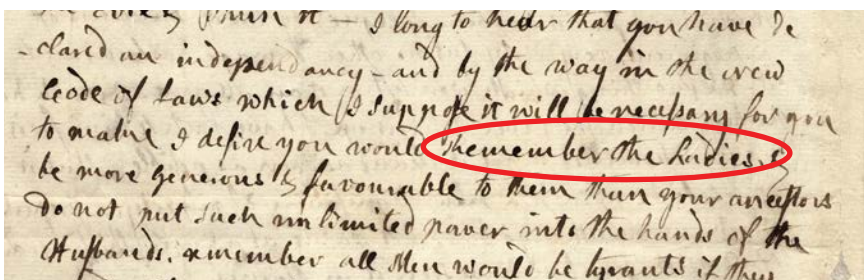 I long to hear that you have de
-clared an independancy - and by the way in the new
Code of Laws which I suppose it will be necessary for you
to make I desire you would Remember the Ladies, &
be more generous & favourable to them than your ancestors
do not put such unlimited power into the hands of the
Husbands. remember all Men would be tyrants if they